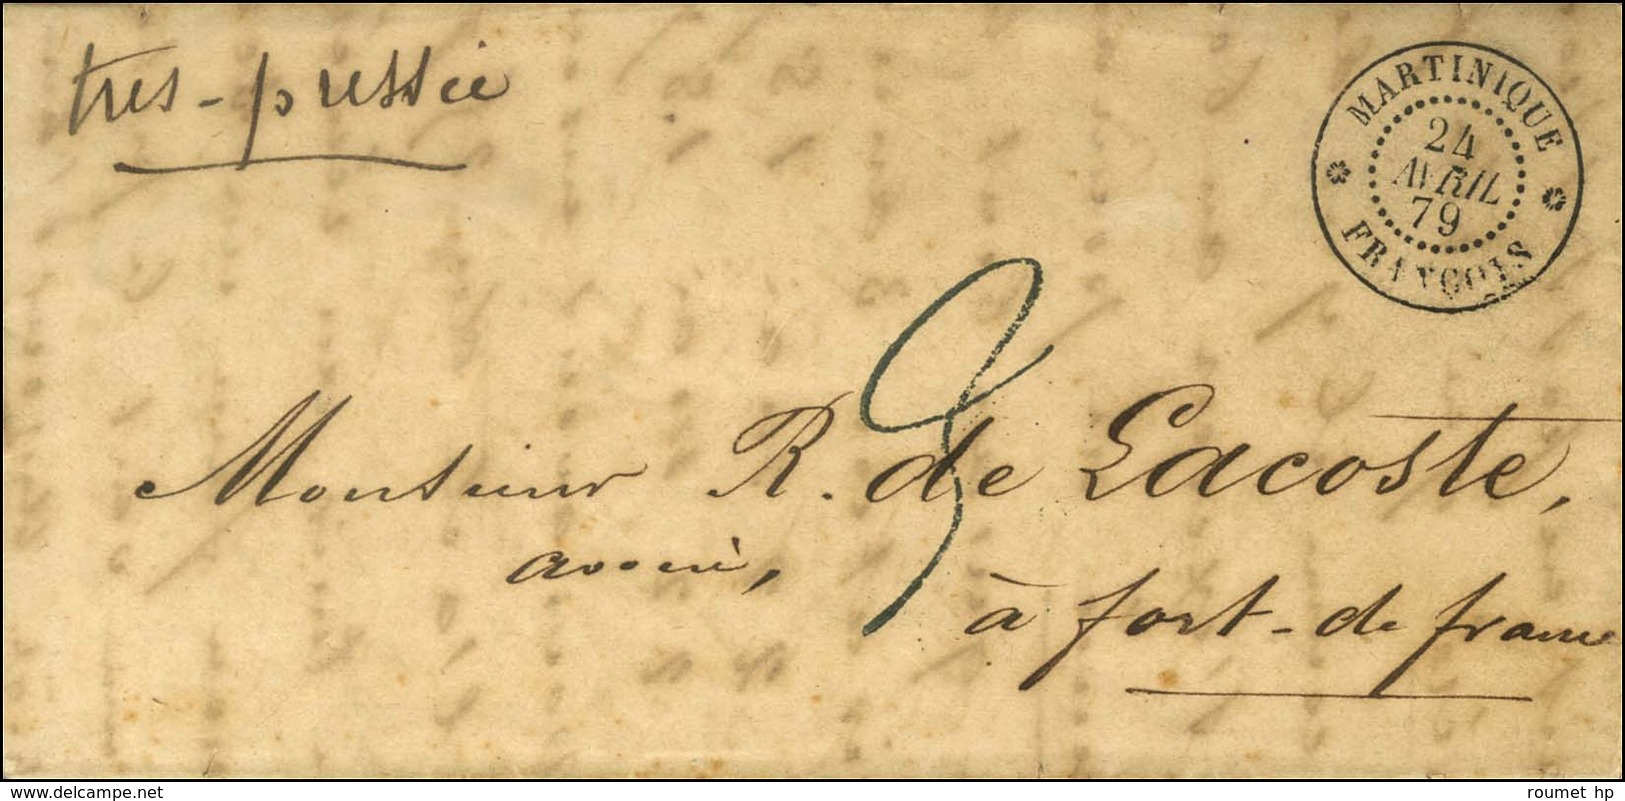 tres-pressée
MARTINIQUE
24
AVRIL
79
FRANÇOIS
3
Monsieur R. de Lacoste,
avoué,
à fort-de france
www.delcampe.net
roumet hp